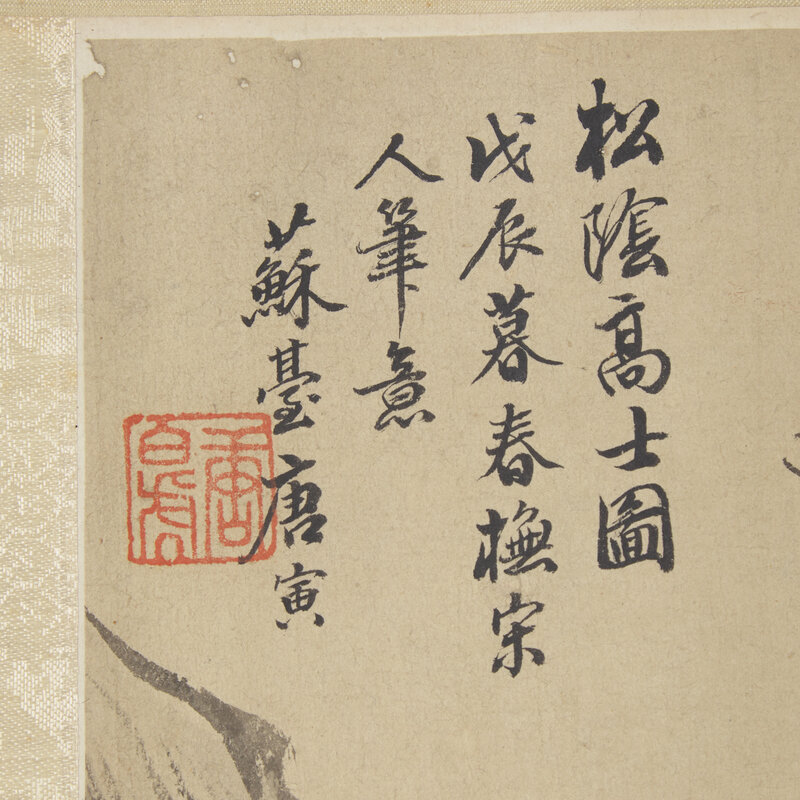 松陰高士圖
戊辰暮春橅宋
人筆意
蘇臺唐寅